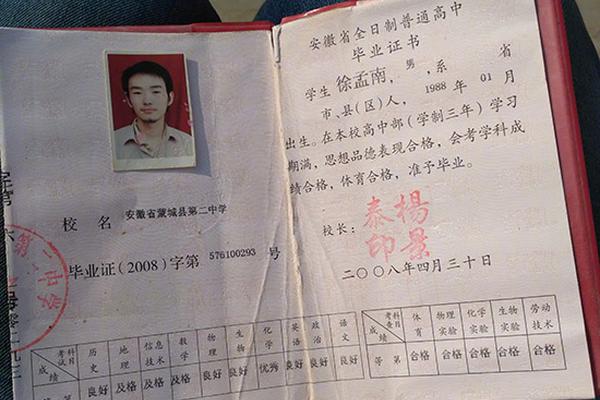 校名 安徽省蒙城县第二中学
毕业证(2008)字第 576100293 号
考试科目 历史 地理 信息技术 数学 物理 生物 化学 英语 政治 语文
成绩 良好 及格 及格 及格 良好 良好 优秀 良好 良好 良好
安徽省全日制普通高中
毕业证书
学生 徐孟南,男,系 省
市、县(区)人, 1988 年 01 月
出生。在本校高中部(学制三年)学习
期满,思想品德表现合格,会考学科成
绩合格,体育合格,准予毕业。
校长: 杨景泰印
二〇〇八年四月三十日
考查科目 体育 物理实验 化学实验 生物实验 劳动技术
成绩
等第 合格 合格 合格 合格 合格